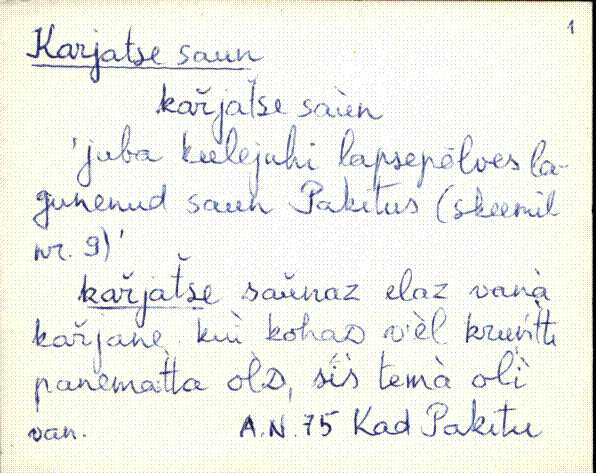 1
Karjatse saun
kařjatše saùn
'juba keelejuhi lapsepõlves la-
gunenud saun Pakitus (skeemil
nr. 9)'
kařjatše saŭnaz elaz vanà
kařjane kuì kohaD vèl kruǹtti
panematta òlD, siìs temà olì
van. A.N. 75 Kad Pakitu